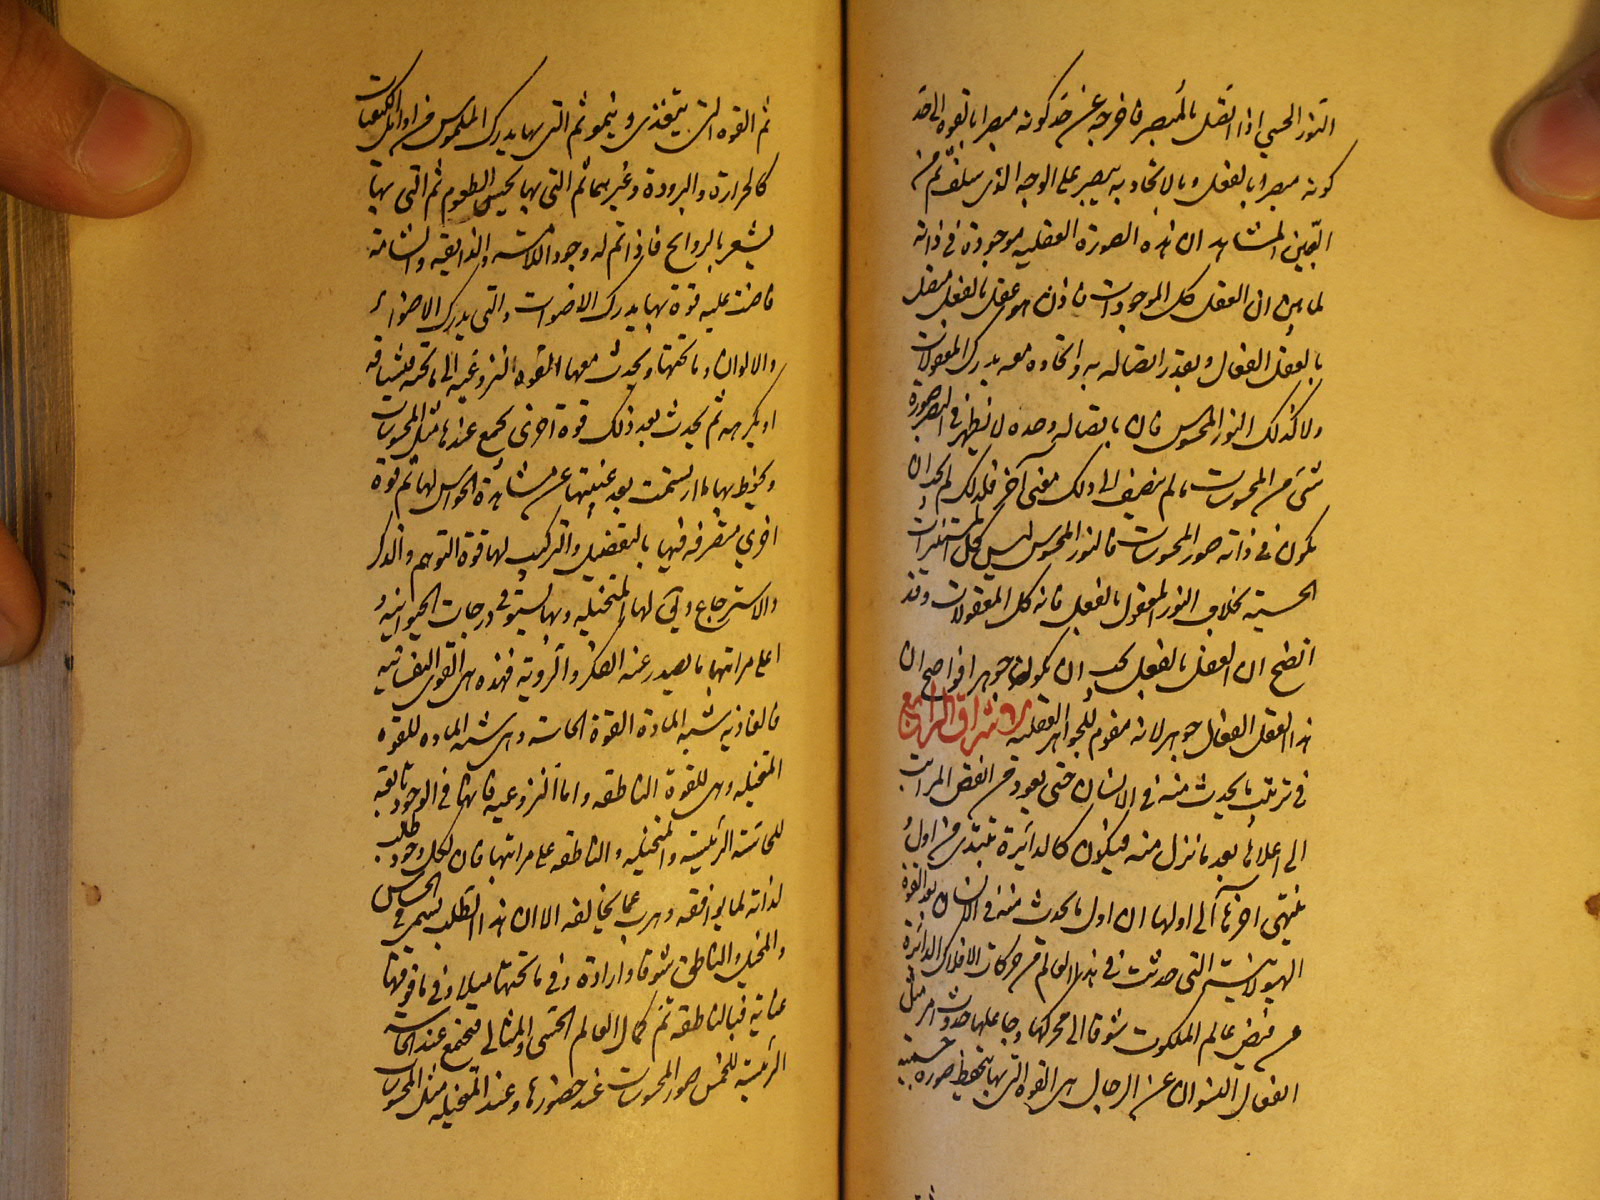 النور الحسي اذا اتصل بالمبصر فاخرجه عن حد كونه مبصرا بالقوه الى حد
كونه مبصرا بالفعل وبالاتحاد به يبصر على الوجه الذى سلف ثم من
المشاهد ان هذه الصورة العقليه موجودة فى ذاته
لما بين ان العقل كل الموجودات فاذن هو عقل بالفعل
بالعقل الفعال وبقدر اتصاله به واتحاده معه يدرك المعقولات
ولا كذلك النور المحسوس فان باتصاله وحده لا تظهر فى البصر صورة
شئ من المحسوسات ما لم ينضيف الى ذلك معنى آخر فلذلك لم يجب ان
يكون فى ذاته صور المحسوسات فالنور المحسوس ليس كل المستنيرات
الحسية بخلاف النور المعقول بالفعل فانه كل المعقولات وقد
اتضح ان العقل بالفعل يجب ان يكون جوهرا فواضح ان
هذا العقل الفعال جوهر لانه مقوم للجواهر العقليه الاشراق الرابع
فى ترتيب ما يحدث منه فى الانسان حتى يعود من انقص المراتب
الى اعلاها بعد ما نزل منه فيكون كالدائرة تبتدى من اول و
ينتهى آخرها الى اولها ان اول ما يحدث منه فى الانسان هو القوة
الهيولانية التى حدثت فى هذا العالم من حركات الافلاك الدائرة
عن فيض عالم الملكوت شوقا الى محركها وجاعلها
النسوان عن الرجال هى القوه التى بها يتحفظ صورة
ثم القوه التى بها يتغذى وينمو ثم التى بها يدرك الملموس من اوائل الكيفيات
كالحرارة والبرودة وغيرهما ثم التى بها يحس الطعوم ثم التى بها
يشعر بالروايح فاذا تم له وجود اللامسه والذايقيه والشامة
فاضت عليه قوة بها يدرك الاصوات والتى يدرك الاضواء
والالوان وما تحتها ويحدث معها القوه النزوعيه الى ما تحسه فتشتاقه
او يكرهه ثم يحدث بعد ذلك قوة اخرى يجمع عندها مثل المحسوسات
ويحفظ بها ما ارتسمت بعد غيبتها عن مشاهدة الحواس لها ثم قوة
اخرى متصرفه فيها بالتفصيل والتركيب لها قوة التوهم والذكر
والاسترجاع لها المتخيله وبها يستوفى درجات الحيوانيه و
اعلى مراتبها ما يصدر عنه الفكر والروية فهذه هى القوى النفسانيه
فالغاذيه شبه المادة القوة الحاسه وهى شبه الماده للقوه
المتخيله وهى للقوة الناطقه واما النزوعيه فانها فى الوجود تابعه
للحاسة الرئيسيه والمتخيله والناطقه على مراتبها فان لكل وجود طلب
لذاته لما يوافقه وهرب عما يخالفه الا ان هذا الطلب يسمى فى الحس
والمتخيل والناطق شوقا وارادة وفى ما تحتها ميلا وفى ما فوقها
عناية فبالناطقه تم كمال العالم الحسى والمثالى فيجتمع عند الحاسه
الرئيسيه للخمس صور المحسوسات عند حضورها وعند المتخيله مثل المحسوسات